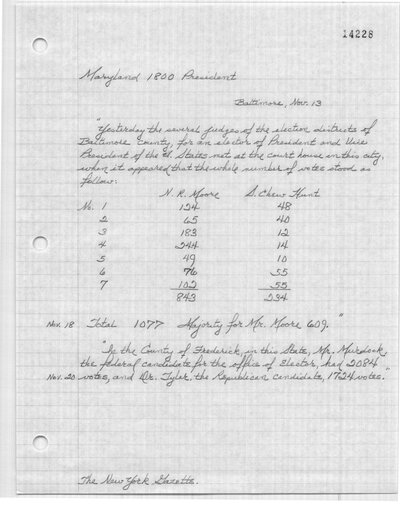 14228
Maryland 1800 President
Baltimore, Nov. 13
"Yesterday the several judges of the election districts of
Baltimore County, for an elector of President and Vice
President of the U. States met at the court house in this city,
when it appeared that the whole number of votes stood as
follow:
N. R. Moore S. Chew Hunt
No. 1 124 48
2 65 40
3 183 12
4 244 14
5 49 10
6 76 55
7 102 55
843 234
Nov. 18 Total 1077 Majority for Mr. Moore 609."
"In the County of Frederick in this State, Mr. Murdock,
the federal candidate for the office of Elector, had 2084
Nov. 20 votes, and Dr. Tyler, the Republican candidate, 1724 votes."
The New York Gazette.